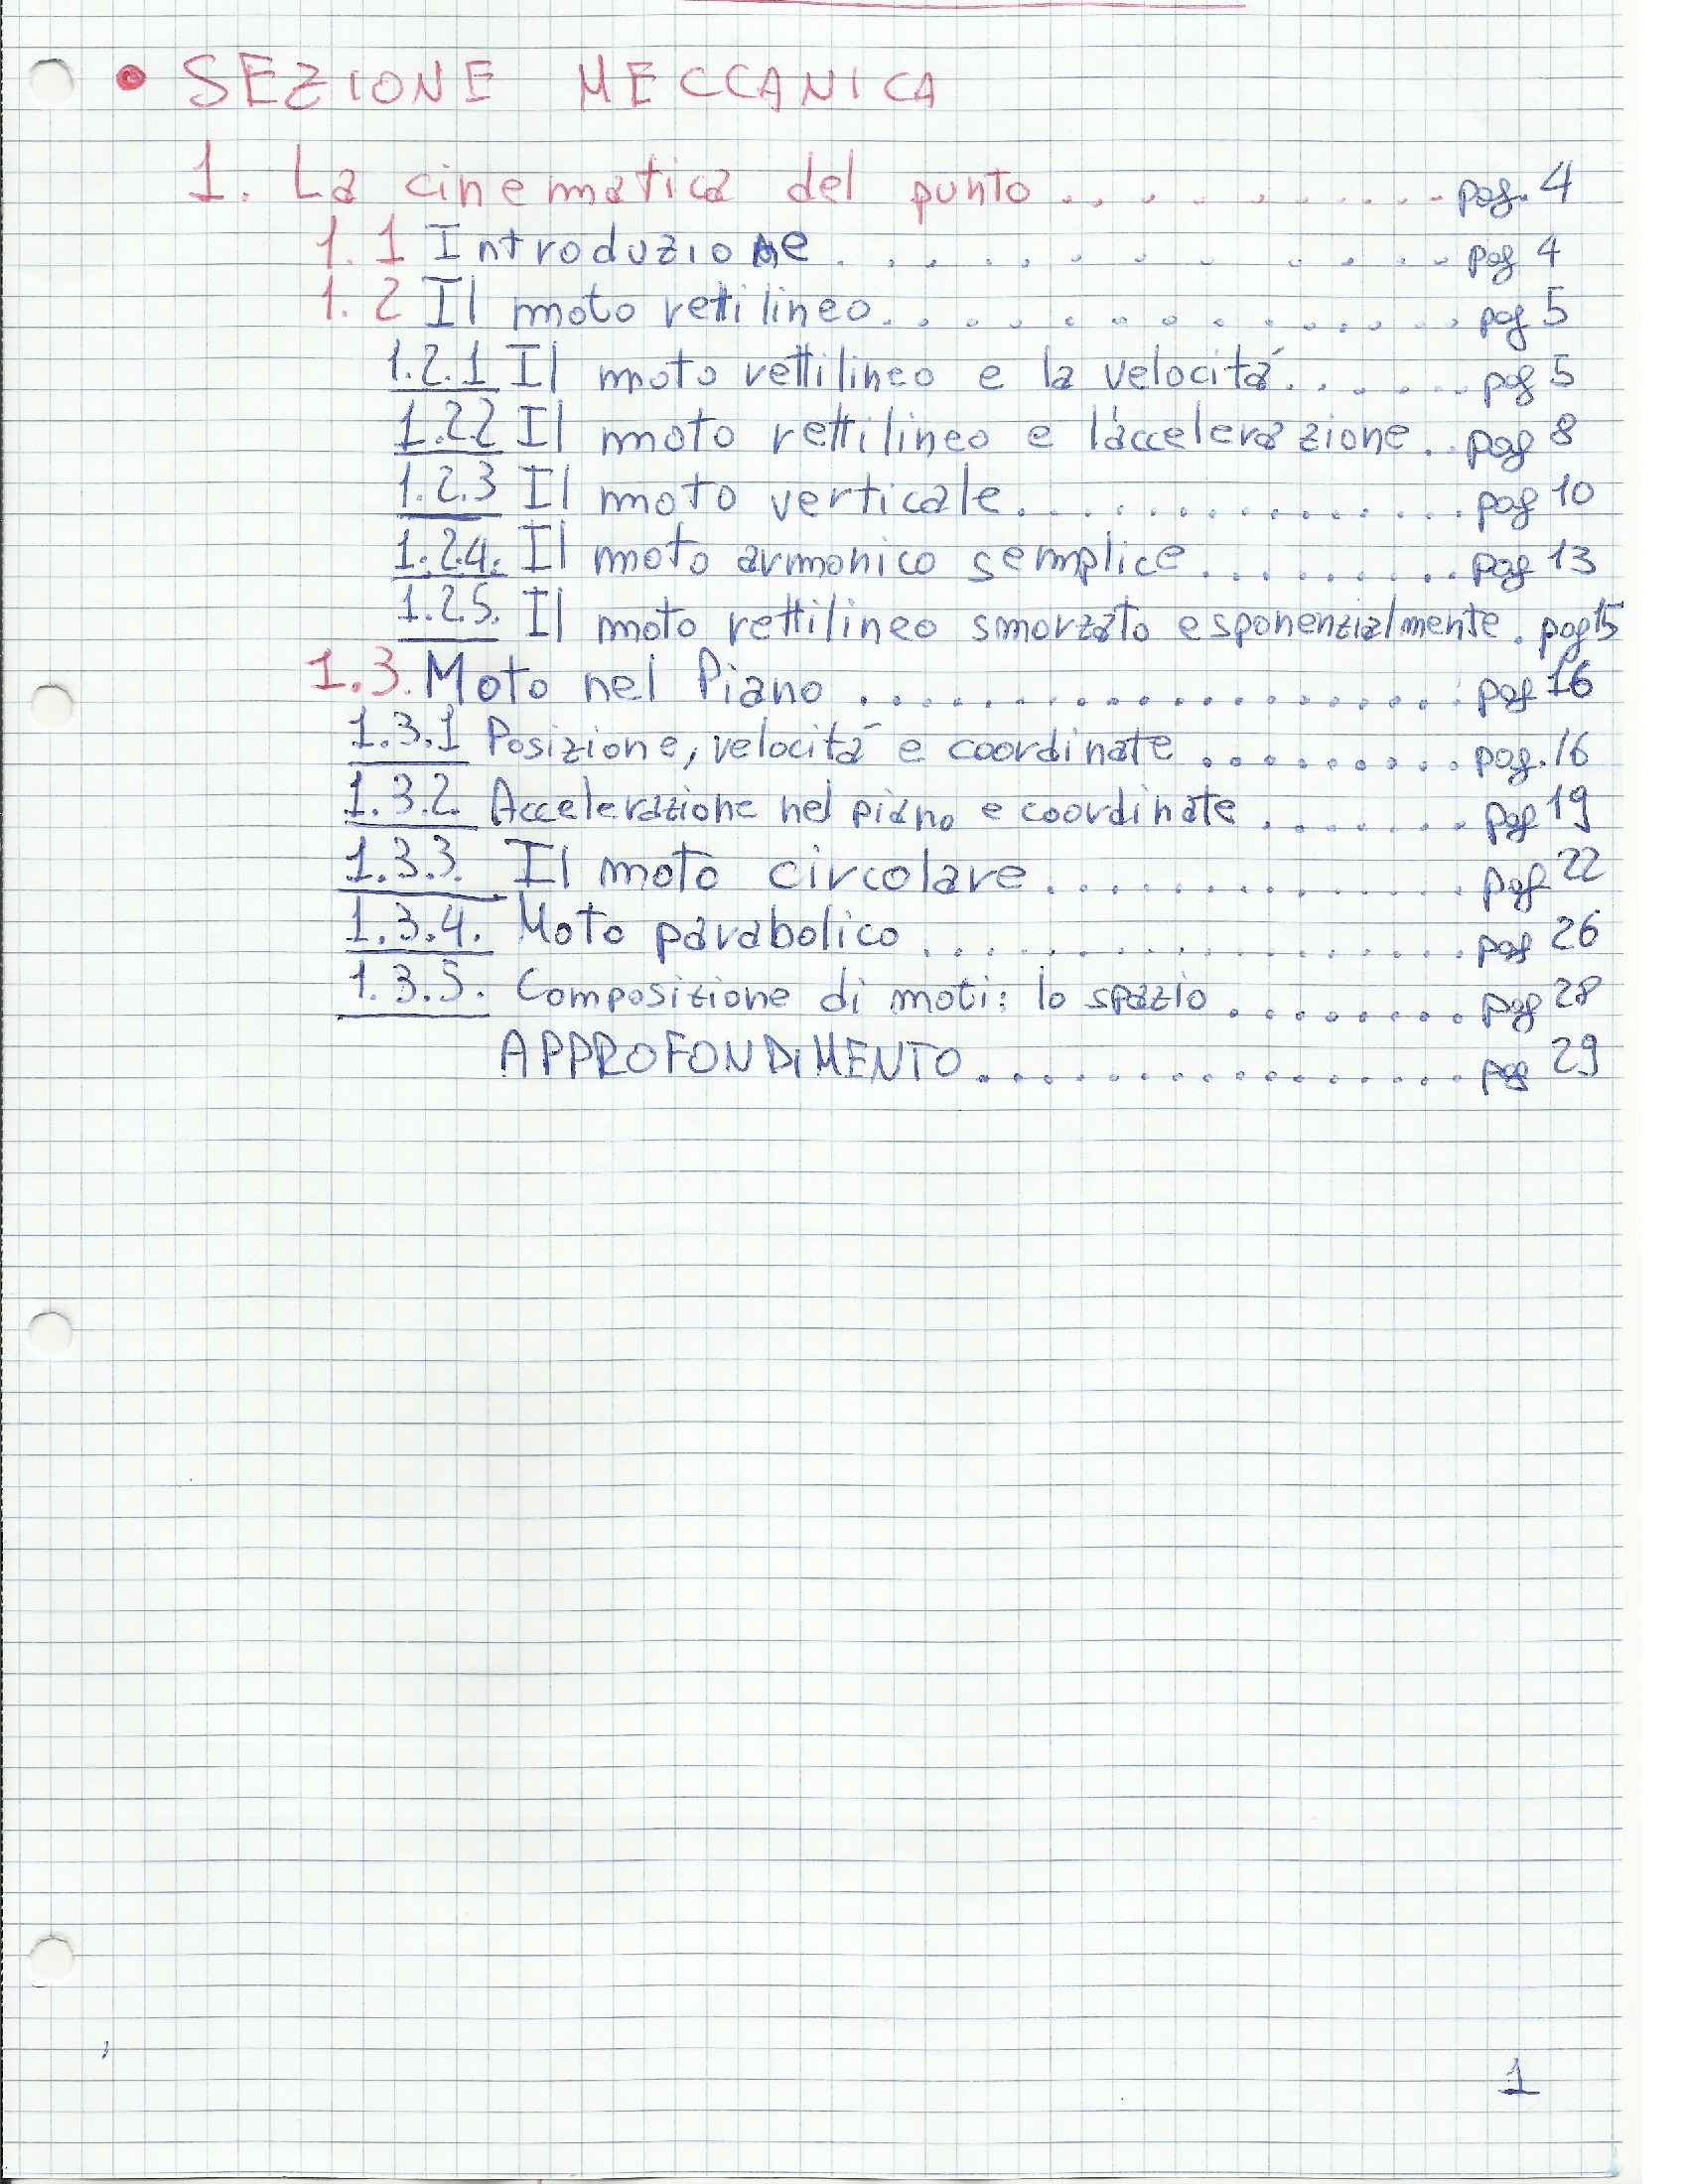 • SEZIONE MECCANICA
1. La cinematica del punto . . . . . . . . . . . pag. 4
1.1 Introduzione . . . . . . . . . . . . . pag 4
1.2 Il moto rettilineo . . . . . . . . . . . . . pag 5
1.2.1 Il moto rettilineo e la velocitá . . . . . . pag 5
1.22 Il moto rettilineo e l'accelerazione . . pag 8
1.2.3 Il moto verticale . . . . . . . . . . . . . pag 10
1.2.4. Il moto armonico semplice . . . . . . . . . pag 13
1.2.5. Il moto rettilineo smorzato esponenzialmente . pag 15
1.3. Moto nel Piano . . . . . . . . . . . . . . . . . . . pag 16
1.3.1 Posizione, velocitá e coordinate . . . . . . . . . pag. 16
1.3.2. Accelerazione nel piano e coordinate . . . . . . . pag 19
1.3.3. Il moto circolare . . . . . . . . . . . . . pag 22
1.3.4. Moto parabolico . . . . . . . . . . . . . . . . . pag 26
1.3.5. Composizione di moti: lo spazio . . . . . . . . pag 28
APPROFONDIMENTO . . . . . . . . . . . . . . . . pag 29
1